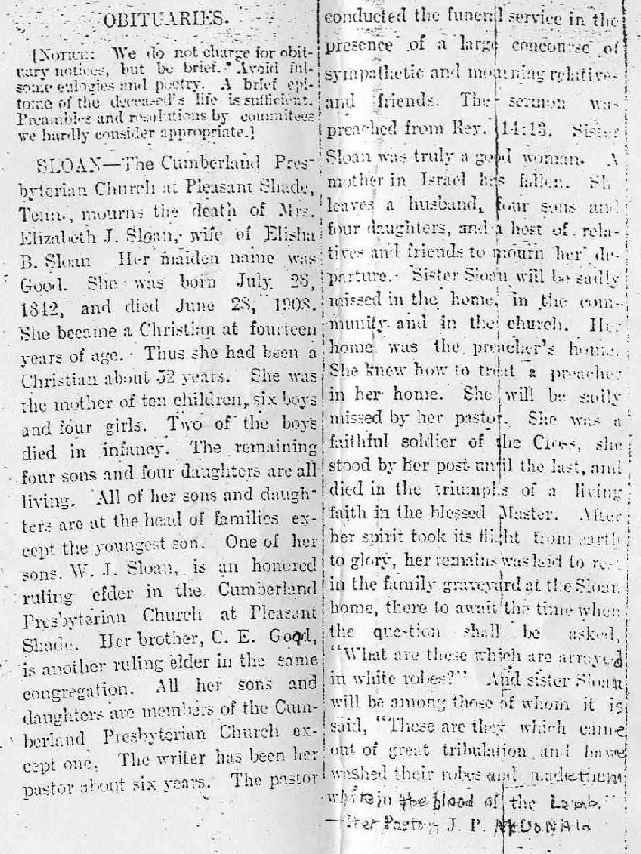 OBITUARIES.
[NOTICE: We do not charge for obit-
uary notices, but be brief. Avoid ful-
some eulogies and poetry. A brief epi-
tome of the deceased's life is sufficient.
Preambles and resolutions by committees
we hardly consider appropriate.]
SLOAN—The Cumberland Pres-
byterian Church at Pleasant Shade,
Tenn., mourns the death of Mrs.
Elizabeth J. Sloan, wife of Elisha
B. Sloan Her maiden name was
Good. She was born July 28,
1842, and died June 28, 1908.
She became a Christian at fourteen
years of age. Thus she had been a
Christian about 52 years. She was
the mother of ten children, six boys
and four girls. Two of the boys
died in infancy. The remaining
four sons and four daughters are all
living. All of her sons and daugh-
ters are at the head of families ex-
cept the youngest son. One of her
sons, W. J. Sloan, is an honored
ruling elder in the Cumberland
Presbyterian Church at Pleasant
Shade. Her brother, C. E. Good,
is another ruling elder in the same
congregation. All her sons and
daughters are members of the Cum-
berland Presbyterian Church ex-
cept one. The writer has been her
pastor about six years. The pastor
conducted the funeral service in the
presence of a large concourse of
sympathetic and mourning relatives
and friends. The sermon was
preached from Rev. 14:13. Sister
Sloan was truly a good woman. A
mother in Israel has fallen. She
leaves a husband, four sons and
four daughters, and a host of rela-
tives and friends to mourn her de-
parture. Sister Sloan will be sadly
missed in the home, in the com-
munity and in the church. Her
home was the preacher's home.
She knew how to treat a preacher
in her home. She will be sadly
missed by her pastor. She was a
faithful soldier of the Cross, she
stood by her post until the last, and
died in the triumphs of a living
faith in the blessed Master. After
her spirit took its flight from earth
to glory, her remains was laid to rest
in the family graveyard at the Sloan
home, there to await the time when
the question shall be asked,
"What are these which are arrayed
in white robes?" And sister Sloan
will be among those of whom it is
said, "These are they which came
out of great tribulation and have
washed their robes and made them
white in the blood of the Lamb."
—Her Pastor, J. P. McDonald